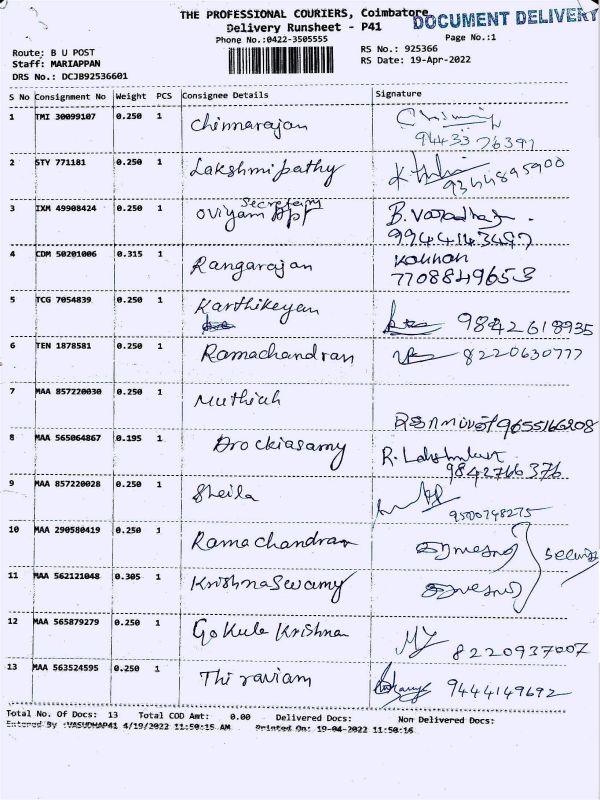 THE PROFESSIONAL COURIERS, Coimbatore
DOCUMENT DELIVERY
Delivery Runsheet - P41
Phone No.:0422-3505555
Page No.:1
Route: B U POST
RS No.: 925366
Staff: MARIAPPAN
RS Date: 19-Apr-2022
DRS No.: DCJB92536601
S No Consignment No Weight PCS Consignee Details Signature
1 TMI 30099107 0.250 1 Chinnarajan
94433 76391
2 STY 771181 0.250 1 Lakshmipathy
9344895900
3 IXM 49908424 0.250 1 Secretary
Oviyam Apt
9944143497
4 CDM 50201006 0.315 1 Rangarajan Kannan
7708849653
5 TCG 7054839 0.250 1 Karthikeyan 9842618935
6 TEN 1878581 0.250 1 Ramachandran 8220630777
7 MAA 857220030 0.250 1 Muthiah
9655166208
8 MAA 565064867 0.195 1 Arockiasamy
9842766376
9 MAA 857220028 0.250 1 Sheila
9500748275
10 MAA 290580419 0.250 1 Ramachandran
11 MAA 562121048 0.305 1 Krishnaswamy
12 MAA 565879279 0.250 1 Gokula Krishnan
8220937007
13 MAA 563524595 0.250 1 Thiraviam 9444149692
Total No. Of Docs: 13 Total COD Amt: 0.00 Delivered Docs: Non Delivered Docs:
Entered By :VASUDHAP41 4/19/2022 11:50:15 AM Printed On: 19-04-2022 11:50:16